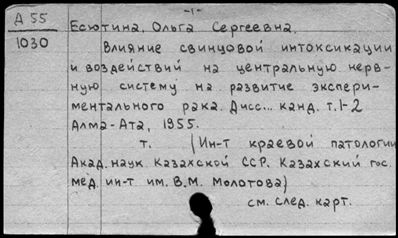 -1-
Д 55
1030
Есютина, Ольга Сергеевна.
Влияние свинцовой интоксикации
и воздействий на центральную нерв-
ную систему на развитие экспери-
ментального рака. Дисс... канд. т.1-2
Алма-Ата, 1955.
т. (Ин-т краевой патологии
Акад. наук Казахской ССР. Казахский гос.
мед. ин-т им. В.М. Молотова)
см. след. карт.